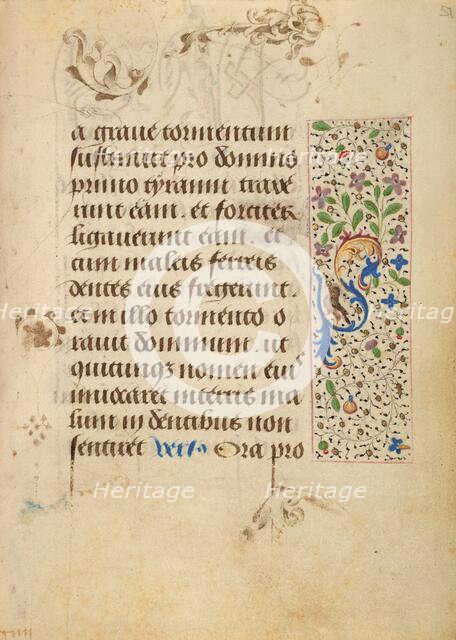 a graue tormentum
sustinuit pro dominis
primo tyranni traxe
runt eam. et fortiter
ligauerunt eam. et
cum maleis ferreis
dentes eius fregerunt.
et in illo tormento o
rauit dominum. ut
quicunqz nomen eius
inuocaret in terris ma
lum in dentibus non
sentiret vers9 Ora pro
Heritage
Heritage
Heritage
Heritage
Heritage
Heritage